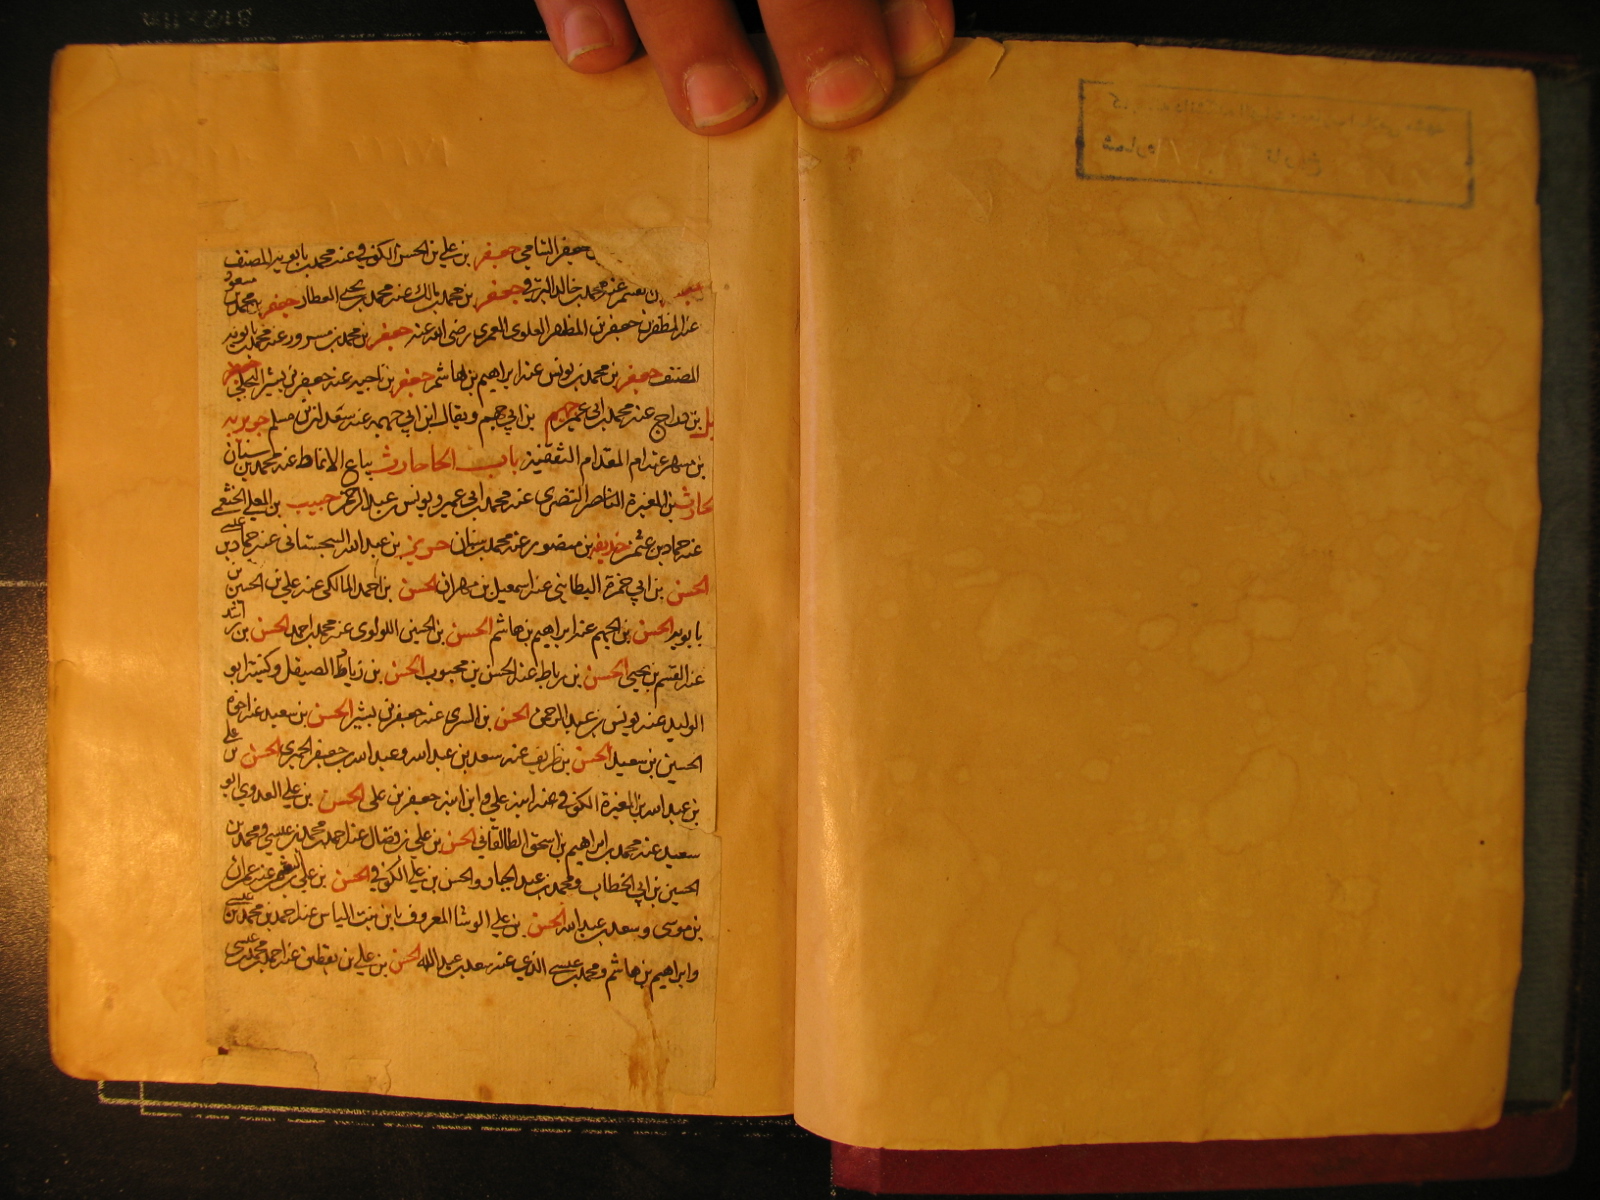 جعفر الشامي جعفر بن علي بن الحسن الكوفي عنه محمد بن بابويه المصنف
بن القسم عنه محمد بن خالد البرقي جعفر بن محمد بن مالك عنه محمد بن يحيى العطار جعفر بن محمد بن مسعود
عنه المظفر بن جعفر بن المظفر العلوي العمري رضي الله عنه جعفر بن محمد بن مسرور عنه محمد بن بابويه
المصنف جعفر بن محمد بن يونس عنه ابراهيم بن هاشم جعفر بن ناجيه عنه جعفر بن بشير البجلي
بن دراج عنه محمد بن ابي عمير جهم بن ابي جهم ويقال ابن ابي جهمه عنه سعدان بن مسلم جويريه
بن مسهر عنه ام المقدام الثقفية باب الحا حارث بياع الانماط عنه محمد بن سنان
حارث بن المغيرة النصري عنه محمد بن ابي عمير ويونس بن عبد الرحمن حبيب بن المعلي الخثعمي
عنه حماد بن عثمن حذيفه بن منصور عنه محمد بن سنان حريز بن عبد الله السجستاني عنه حماد بن عيسى
الحسن بن ابي حمزة البطايني عنه اسمعيل بن مهران الحسن بن احمد المالكي عنه علي بن الحسين بن
بابويه الحسن بن الجهم عنه ابراهيم بن هاشم الحسن بن الحسين اللولوي عنه محمد بن احمد الحسن بن راشد
عنه القسم بن يحيى الحسن بن رباط عنه الحسن بن محبوب الحسن بن زياد الصيقل وكنيته ابو
الوليد عنه يونس بن عبد الرحمن الحسن بن السري عنه جعفر بن بشير الحسن بن سعيد عنه اخوه
الحسين بن سعيد الحسن بن ظريف عنه سعد بن عبد الله وعبد الله بن جعفر الحميري الحسن بن علي
بن عبد الله بن المغيرة الكوفي عنه ابنه علي وابن ابنه جعفر بن علي الحسن بن علي العدوي ابو
سعيد عنه محمد بن ابراهيم بن اسحق الطالقاني الحسن بن علي بن فضال عنه احمد بن محمد بن عيسى ومحمد بن
الحسين بن ابي الخطاب ومحمد بن عبد الجبار والحسن بن علي الكوفي الحسن بن علي عنه عمران
بن موسى وسعد بن عبد الله الحسن بن علي الوشا المعروف بابن بنت الياس عنه احمد بن محمد بن عيسى
وابراهيم بن هاشم ومحمد بن عيسى عنه سعد بن عبد الله الحسن بن علي بن يقطين عنه احمد بن محمد بن عيسى
شماره